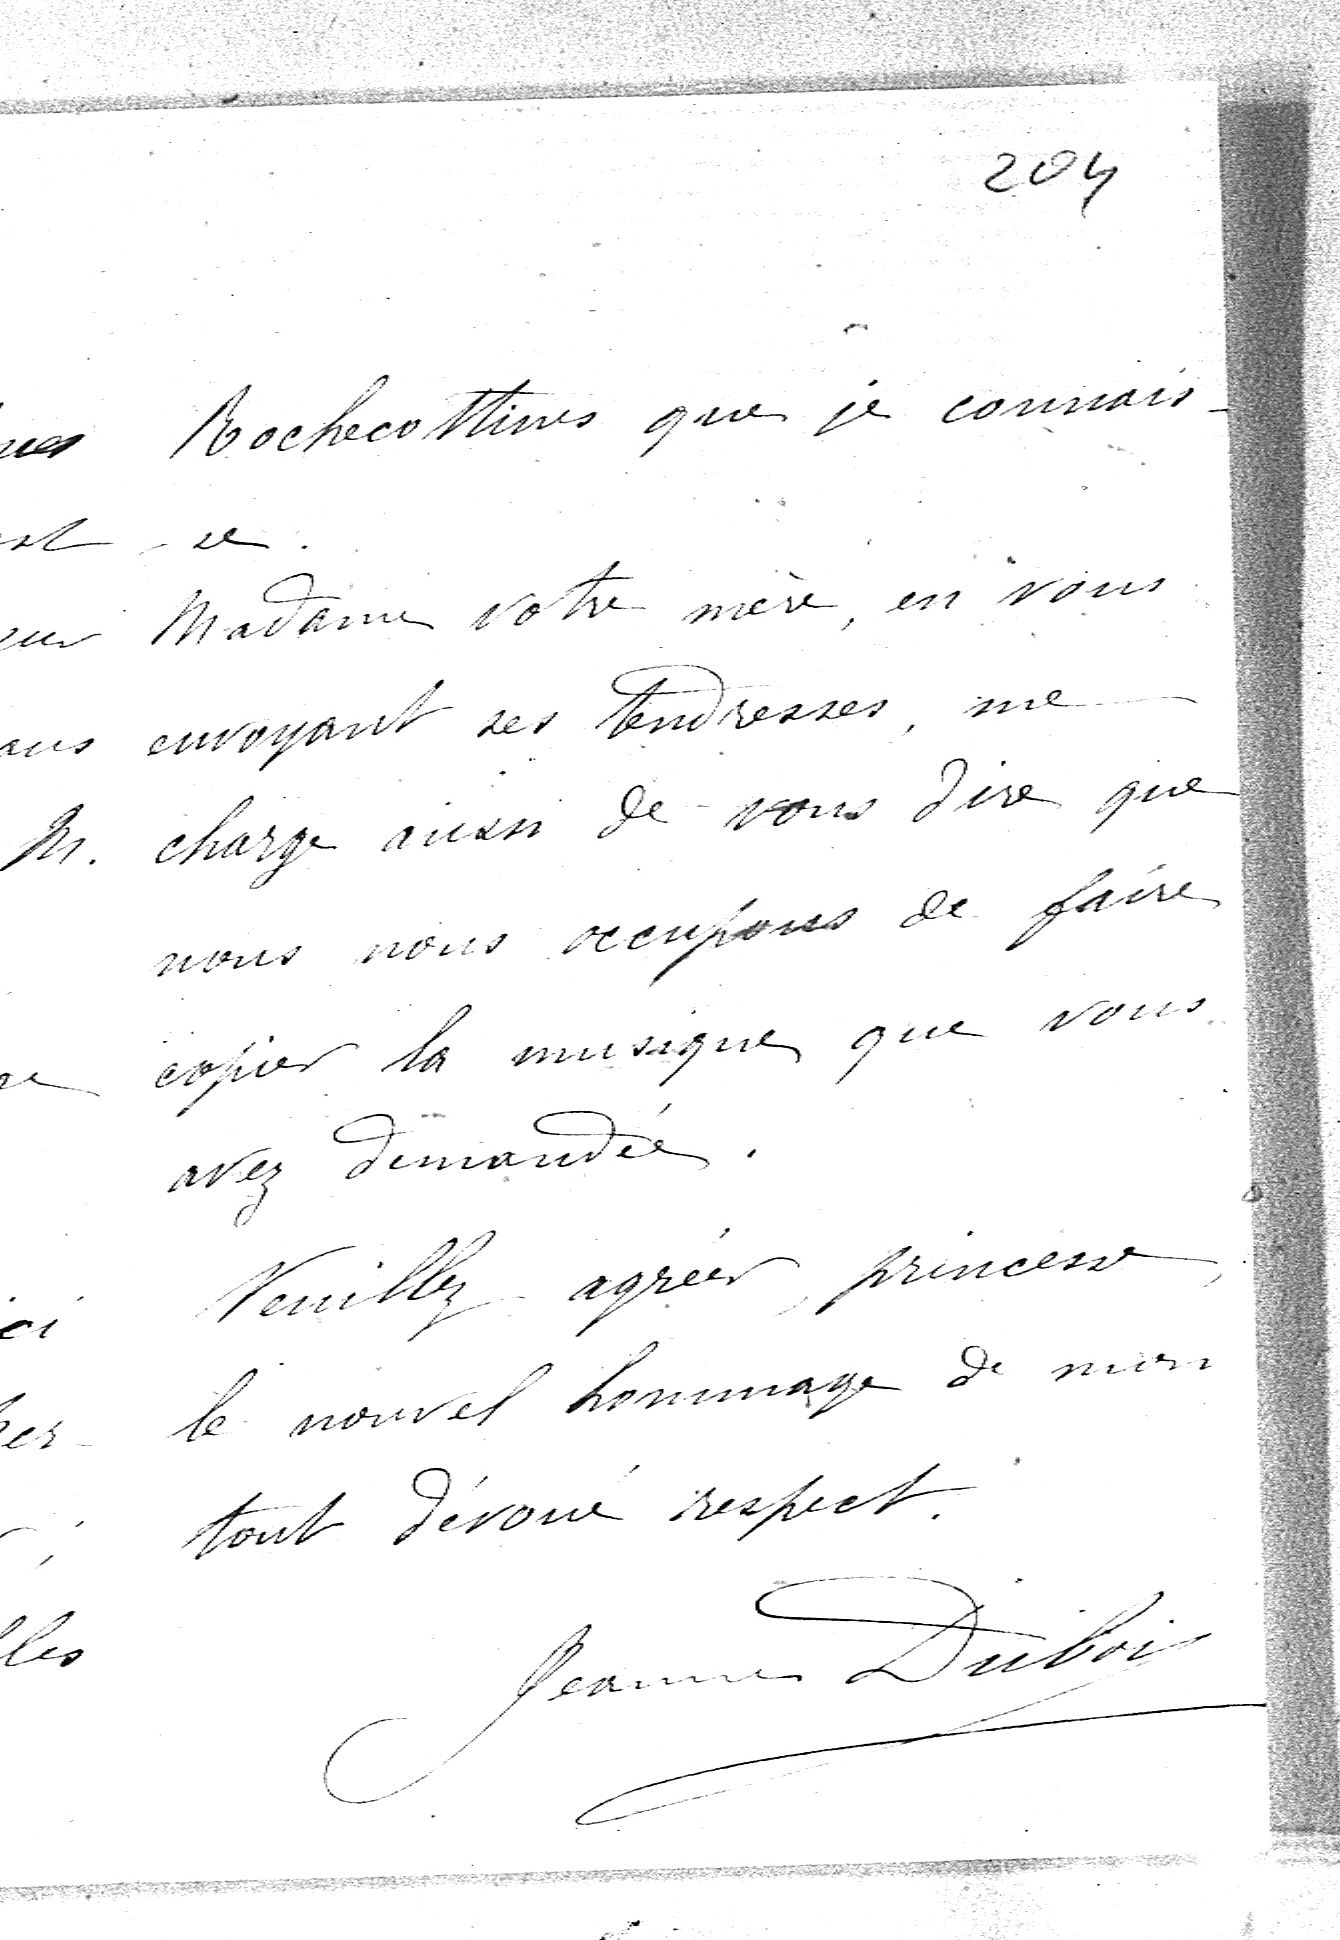 204
Rochecottines que je connais-
se.
Madame votre mère, en vous
envoyant ses tendresses, me
M. charge aussi de vous dire que
nous nous occupons de faire
copier la musique que vous
avez demandée.
ici Veuillez agréer, princesse,
le nouvel hommage de mon
tout dévoué respect.
Jeanne Dubois